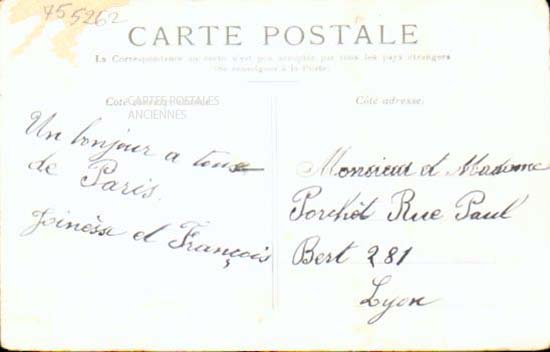 755262
CARTE POSTALE
La Correspondance au recto n'est pas acceptée par tous les pays étrangers
(Se renseigner à la Poste)
Côté correspondance.
CARTES POSTALES
ANCIENNES
Côté adresse.
Un bonjour a tous
de Paris.
et François
Monsieur et Madame
Porchet Rue Paul
Bert 281
Lyon